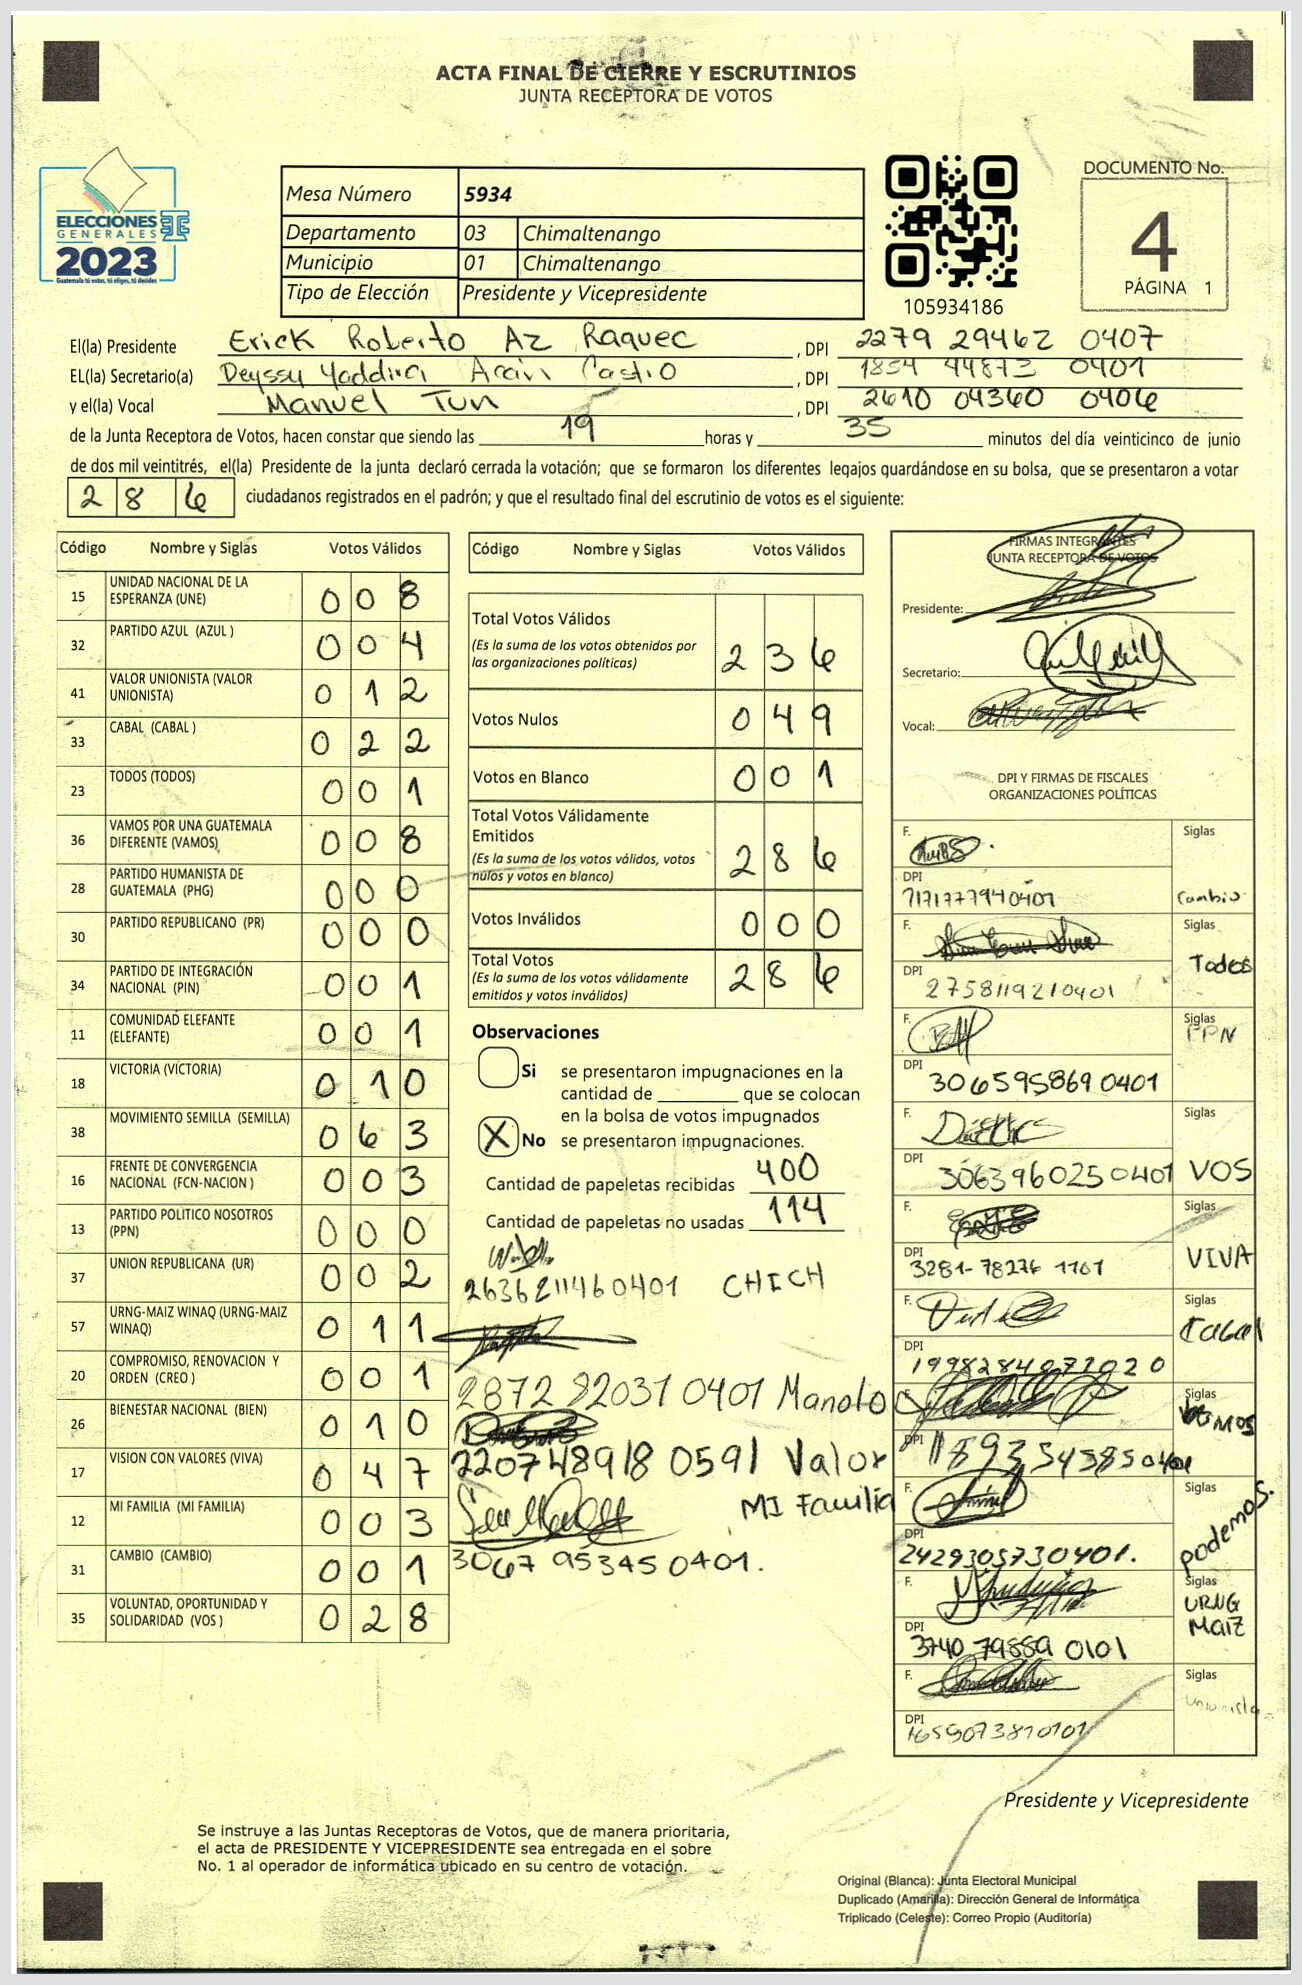 ACTA FINAL DE CIERRE Y ESCRUTINIOS
JUNTA RECEPTORA DE VOTOS
ELECCIONES
GENERALES
2023
Guatemala tú votas, tú eliges, tú decides
Mesa Número 5934
Departamento 03 Chimaltenango
Municipio 01 Chimaltenango
Tipo de Elección Presidente y Vicepresidente
105934186
DOCUMENTO No.
4
PÁGINA 1
El(la) Presidente Erick Roberto Az Raquec , DPI 2279 29462 0407
EL(la) Secretario(a) Deyssy Yaddira Castro , DPI 1854 44873 0401
y el(la) Vocal Manuel Tun , DPI 2610 04360 0406
de la Junta Receptora de Votos, hacen constar que siendo las 19 horas y 35 minutos del día veinticinco de junio
de dos mil veintitrés, el(la) Presidente de la junta declaró cerrada la votación; que se formaron los diferentes legajos guardándose en su bolsa, que se presentaron a votar
286 ciudadanos registrados en el padrón; y que el resultado final del escrutinio de votos es el siguiente:
Código Nombre y Siglas Votos Válidos
15 UNIDAD NACIONAL DE LA ESPERANZA (UNE) 008
32 PARTIDO AZUL (AZUL ) 004
41 VALOR UNIONISTA (VALOR UNIONISTA) 012
33 CABAL (CABAL ) 022
23 TODOS (TODOS) 001
36 VAMOS POR UNA GUATEMALA DIFERENTE (VAMOS) 008
28 PARTIDO HUMANISTA DE GUATEMALA (PHG) 000
30 PARTIDO REPUBLICANO (PR) 000
34 PARTIDO DE INTEGRACIÓN NACIONAL (PIN) 001
11 COMUNIDAD ELEFANTE (ELEFANTE) 001
18 VICTORIA (VICTORIA) 010
38 MOVIMIENTO SEMILLA (SEMILLA) 063
16 FRENTE DE CONVERGENCIA NACIONAL (FCN-NACION ) 003
13 PARTIDO POLITICO NOSOTROS (PPN) 000
37 UNION REPUBLICANA (UR) 002
57 URNG-MAIZ WINAQ (URNG-MAIZ WINAQ) 011
20 COMPROMISO, RENOVACION Y ORDEN (CREO ) 001
26 BIENESTAR NACIONAL (BIEN) 010
17 VISION CON VALORES (VIVA) 047
12 MI FAMILIA (MI FAMILIA) 003
31 CAMBIO (CAMBIO) 001
35 VOLUNTAD, OPORTUNIDAD Y SOLIDARIDAD (VOS ) 028
Código Nombre y Siglas Votos Válidos
Total Votos Válidos 236
(Es la suma de los votos obtenidos por
las organizaciones políticas)
Votos Nulos 049
Votos en Blanco 001
Total Votos Válidamente
Emitidos 286
(Es la suma de los votos válidos, votos
nulos y votos en blanco)
Votos Inválidos 000
Total Votos 286
(Es la suma de los votos válidamente
emitidos y votos inválidos)
Observaciones
Si se presentaron impugnaciones en la
cantidad de ________ que se colocan
en la bolsa de votos impugnados
X No se presentaron impugnaciones.
Cantidad de papeletas recibidas 400
Cantidad de papeletas no usadas 114
2636211460401 CHICH
2872 82031 0401 Manolo
220748918 0591 Valor
MI Familia
3067 95345 0401.
FIRMAS INTEGRANTES
JUNTA RECEPTORA DE VOTOS
Presidente:
Secretario:
Vocal:
DPI Y FIRMAS DE FISCALES
ORGANIZACIONES POLÍTICAS
F. Siglas
DPI
7171777940401 Cambio
F. Siglas
Todos
DPI
2758119210401
F. Siglas
PPN
DPI
3065958690401
F. Siglas
DPI
3063960250401 VOS
F. Siglas
VIVA
DPI
3281-78276 1101
F. Siglas
Cabal
DPI
1998284072020
F. Siglas
Vamos
DPI
1893545850401
F. Siglas
podemos.
DPI
2429305730401.
F. Siglas
URNG
MAIZ
DPI
3740 79889 0101
F. Siglas
Unionista
DPI
1659073870101
Presidente y Vicepresidente
Se instruye a las Juntas Receptoras de Votos, que de manera prioritaria,
el acta de PRESIDENTE Y VICEPRESIDENTE sea entregada en el sobre
No. 1 al operador de informática ubicado en su centro de votación.
Original (Blanca): Junta Electoral Municipal
Duplicado (Amarilla): Dirección General de Informática
Triplicado (Celeste): Correo Propio (Auditoría)